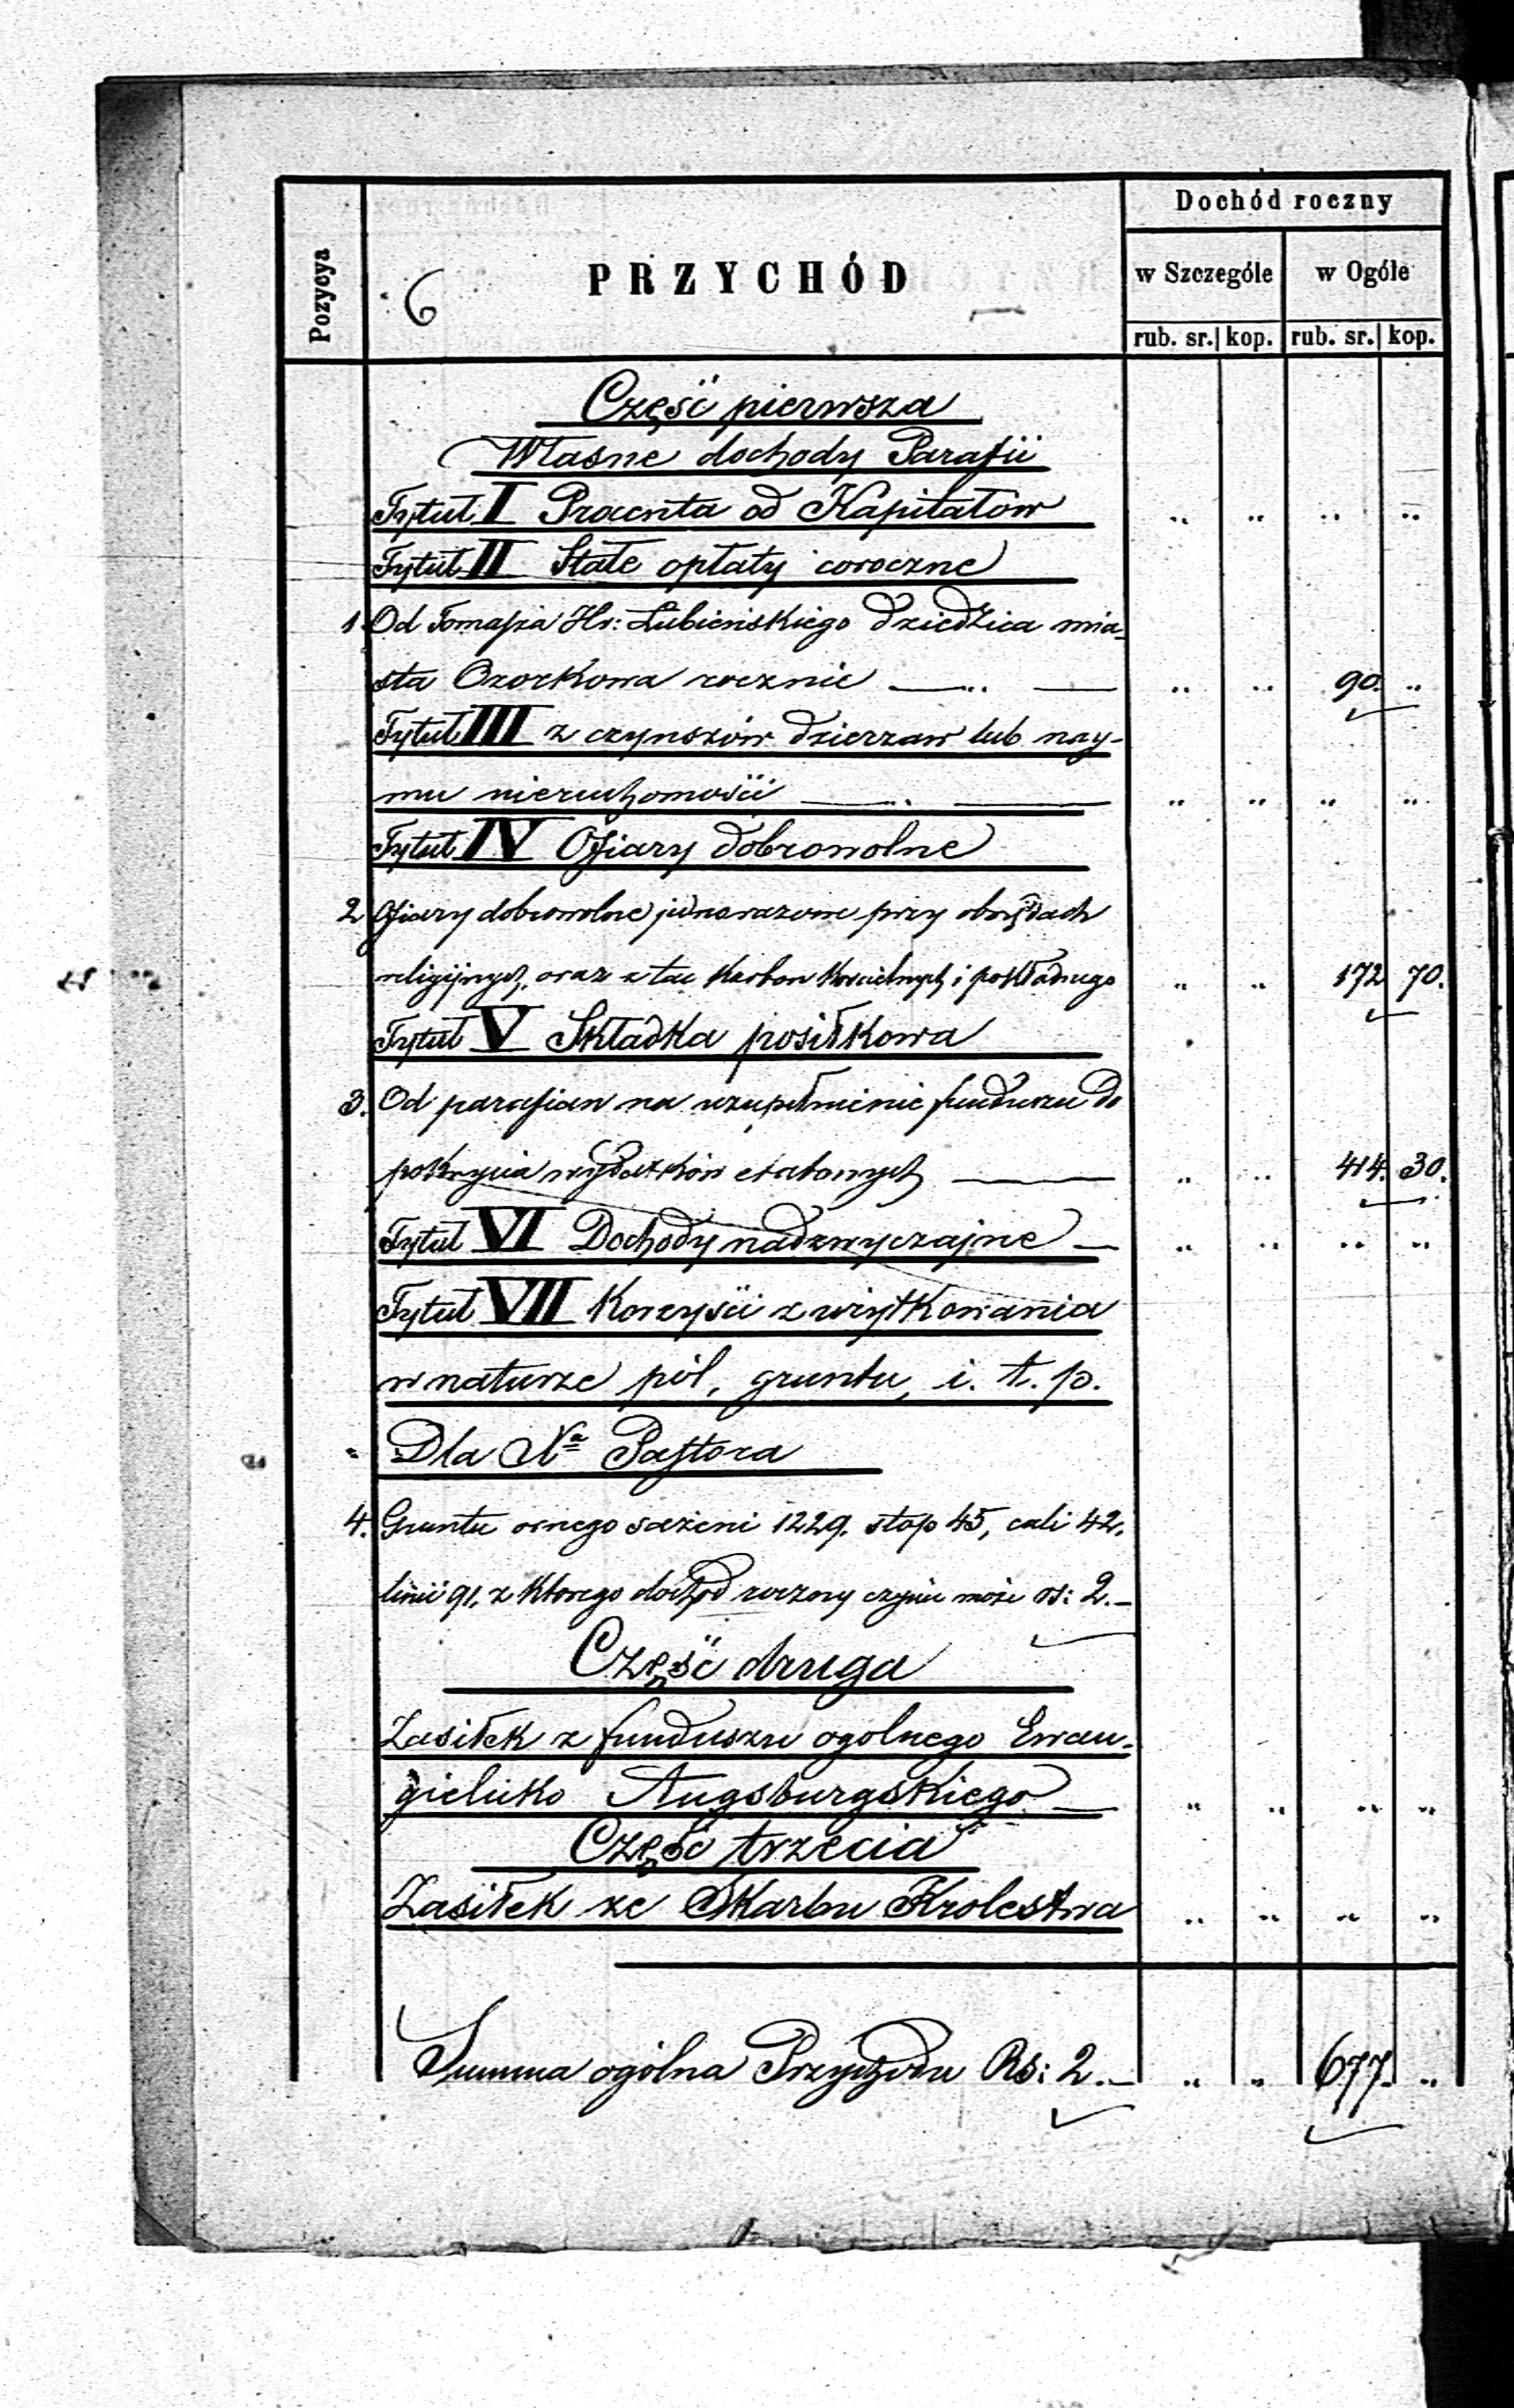 Dochód roczny
Pozycya
6
PRZYCHÓD
w Szczególe w Ogóle
rub. sr. kop. rub. sr. kop.
Część pierwsza
Własne dochody Parafii
Tytuł I Procenta od Kapitałów .. .. .. ..
Tytuł II Stałe opłaty coroczne
1 Od Tomasza Hr: Łubieńskiego dziedzica mia-
sta Ozorkowa rocznie — .. — .. .. 90. ..
Tytuł III z czynszów dzierzaw lub nay-
mu nieruchomości — .. — .. .. .. ..
Tytuł IV Ofiary dobrowolne
2 Ofiary dobrowolne jednorazowe przy obrzędach
religijnych, oraz z tac Karbon Kościelnych i pokładnego .. .. 172 70.
Tytuł V Składka posiłkowa
3. Od parafian na uzupełnienie funduszu do
pokrycia wydatków etatowych — .. .. 414. 30.
Tytuł VI Dochody nadzwyczajne — .. .. .. ..
Tytuł VII Korzyści z użytkowania
w naturze pól, gruntu, i. t. p.
" Dla Nа Pastora
4. Gruntu ornego sażeni 1229. stop 45, cali 42.
linii 91, z którego dochód roczny czynić może rs: 2.—
Część druga
Zasiłek z funduszu ogolnego Ewan-
gielicko Augsburgskiego — .. .. .. ..
Część trzecia
Zasiłek ze Skarbu Krolestwa .. .. .. ..
Summa ogólna Przychodu Rs: 2.— .. .. 677. ..